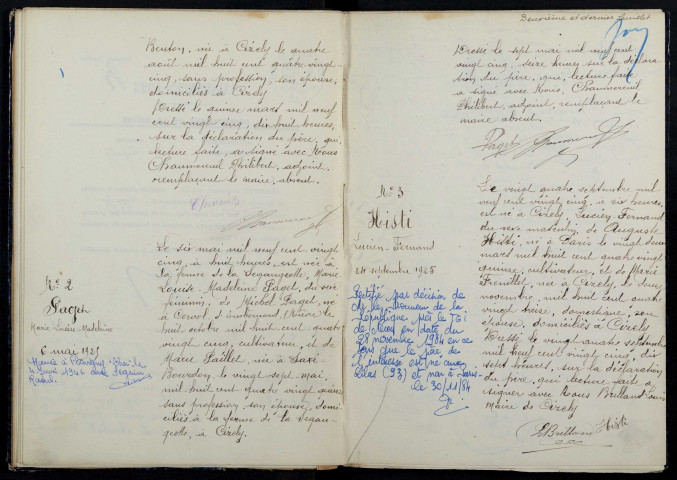 Deuxième et dernier feuillet
née à Cizely le quatre
août mil huit cent quatre vingt
cinq, sans profession, son épouse,
domiciliés à Cizely
Dressé le quinze mars mil neuf
cent vingt cinq, dix huit heures,
sur la déclaration du père, qui,
lecture faite, a signé avec Nous
Chaumereuil Philibert, adjoint,
remplaçant le maire, absent.
Nº 2
Paget
Marie Louise Madeleine
6 mai 1925
Le six mai mil neuf cent vingt
cinq, à huit heures, est née à
la ferme de la Marie
Louise Madeleine Paget, du sexe
féminin, de Michel Paget, né
à Corvol d'Embernard (Nièvre) le
huit octobre mil huit cent quatre
vingt cinq, cultivateur, et de
Marie née à Saxi-
Bourdon, le vingt sept mai,
mil huit cent quatre vingt onze
sans profession, son épouse, domi-
ciliés à la ferme de la
à Cizely.
Dressé le sept mai mil neuf cent
vingt cinq, seize heures sur la déclara-
tion du père, qui, lecture faite
a signé avec Nous, Chaumereuil
Philibert, adjoint, remplaçant le
maire absent.
Paget
Nº 3
Histi
Lucien-Fernand
24 septembre 1925
Rectifié par décision de
République près le TGI
de en date du
28 novembre 1984 en ce
sens que le père de
l'intéressé est né aux
Lilas (93) et non à Paris
le 30/11/84
Le vingt quatre septembre mil
neuf cent vingt cinq, à six heures,
est né à Cizely Lucien Fernand
du sexe masculin, de Auguste
Histi, né à Paris le vingt deux
mars mil huit cent quatre vingt
quinze, cultivateur, et de Marie
née à Cizely, le
novembre, mil huit cent quatre
vingt treize, domestique, son
épouse, domiciliés à Cizely
Dressé le vingt quatre septembre
mil neuf cent vingt cinq, dix
sept heures, sur la déclaration
du père, qui lecture faite, a
signé avec Nous
maire de Cizely
Histi